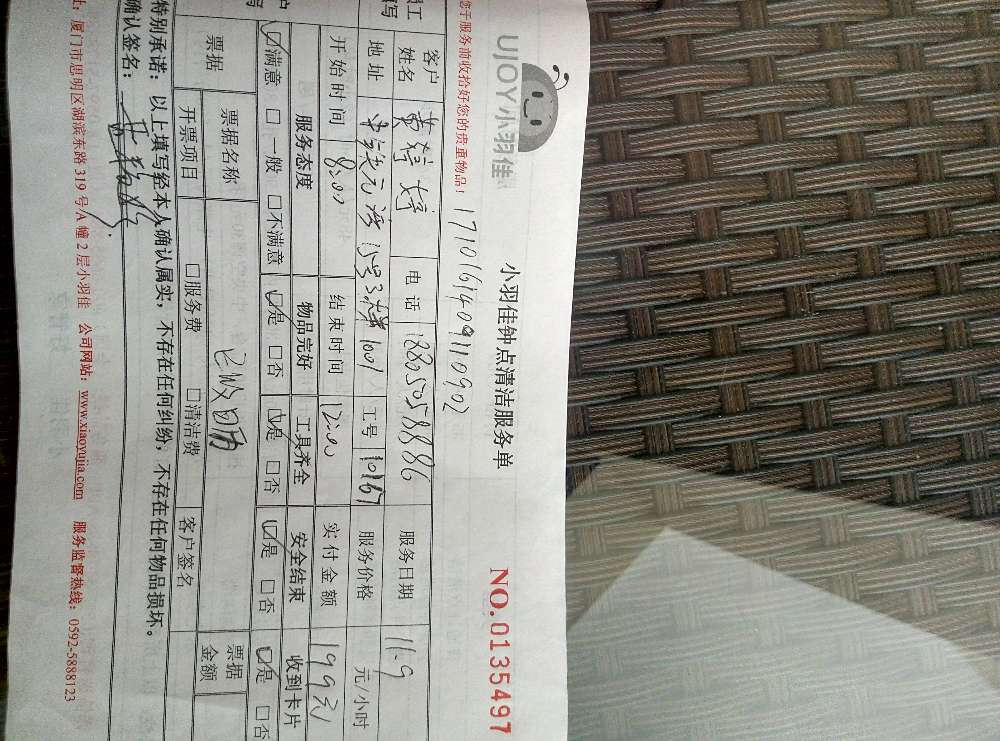 UJOY小羽佳
小羽佳钟点清洁服务单
NO.0135497
您于服务前收拾好您的贵重物品！
1710161409110902
客户姓名 电话 18805058886 服务日期 11.9
地址 15号3楼1001 工号 10167 服务价格 元/小时
开始时间 8:00 结束时间 12:00 实付金额 199元
服务态度 物品完好 工具齐全 安全结束 收到卡片
☑满意 □一般 □不满意 ☑是 □否 ☑是 □否 ☑是 □否 ☑是 □否
票据 票据名称 票据金额
开票项目 □服务费 □清洁费 客户签名
特别承诺：以上填写经本人确认属实，不存在任何纠纷，不存在任何物品损坏。
确认签名：
址：厦门市思明区湖滨东路319号A幢2层小羽佳 公司网站：www.xiaoyujia.com 服务监督热线：0592-5888123